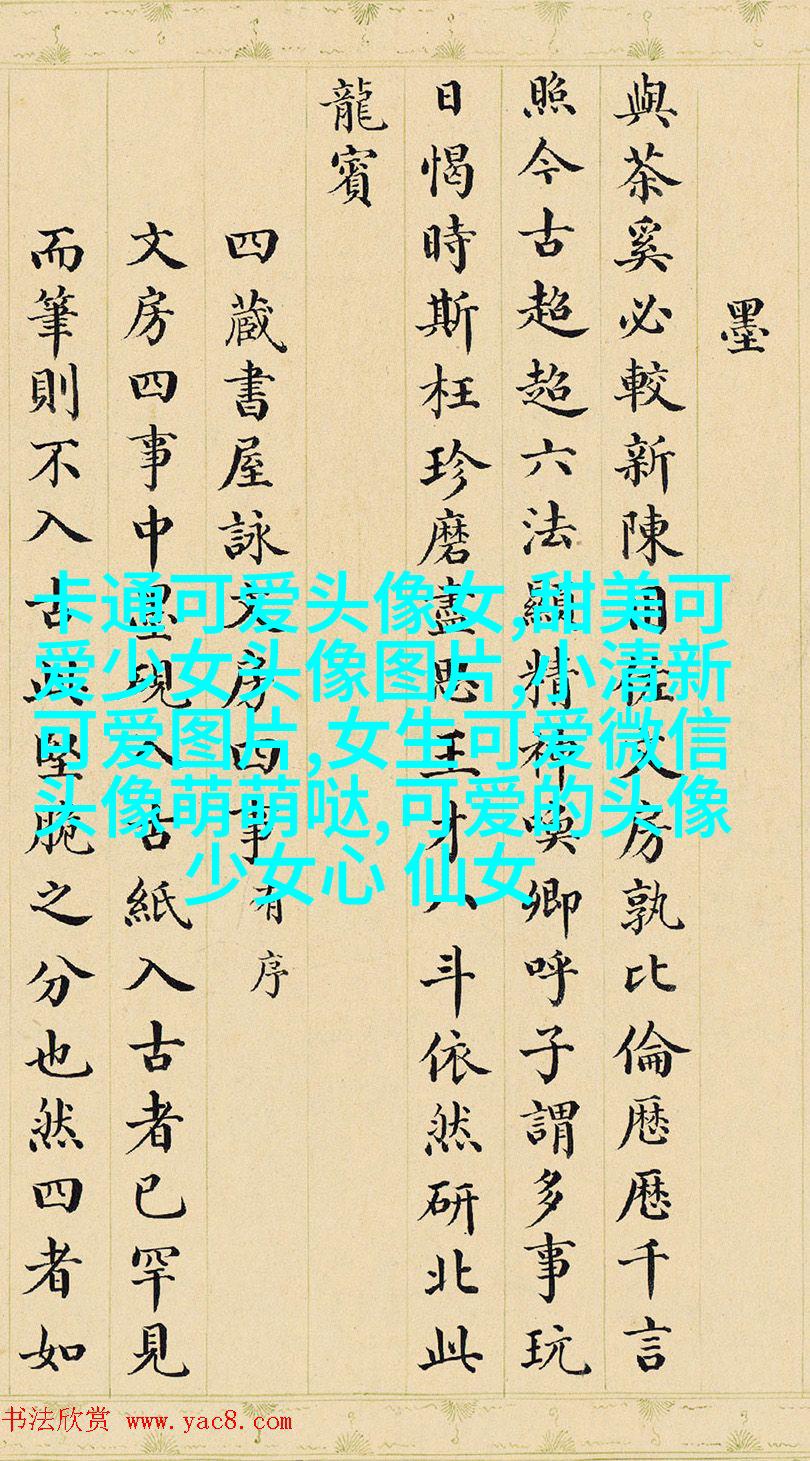 墨
與茶奚必較新陳用佐文房孰比倫歷歷千言
照今古超超六法顯精神喚卿呼子謂多事玩
日愒時斯枉珍磨盡思王才八斗依然研北此
龍賓
四蔵書屋詠文房四事有序
文房四事中墨硯入古紙入古者已罕見
而筆則不入古此堅脆之分也然四者如
卡通可爱头像女,甜美可
爱少女头像图片,小清新
可爱图片,女生可爱微信
头像萌萌哒,可爱的头像
少女心 仙女
书法欣赏 www.yac8.com